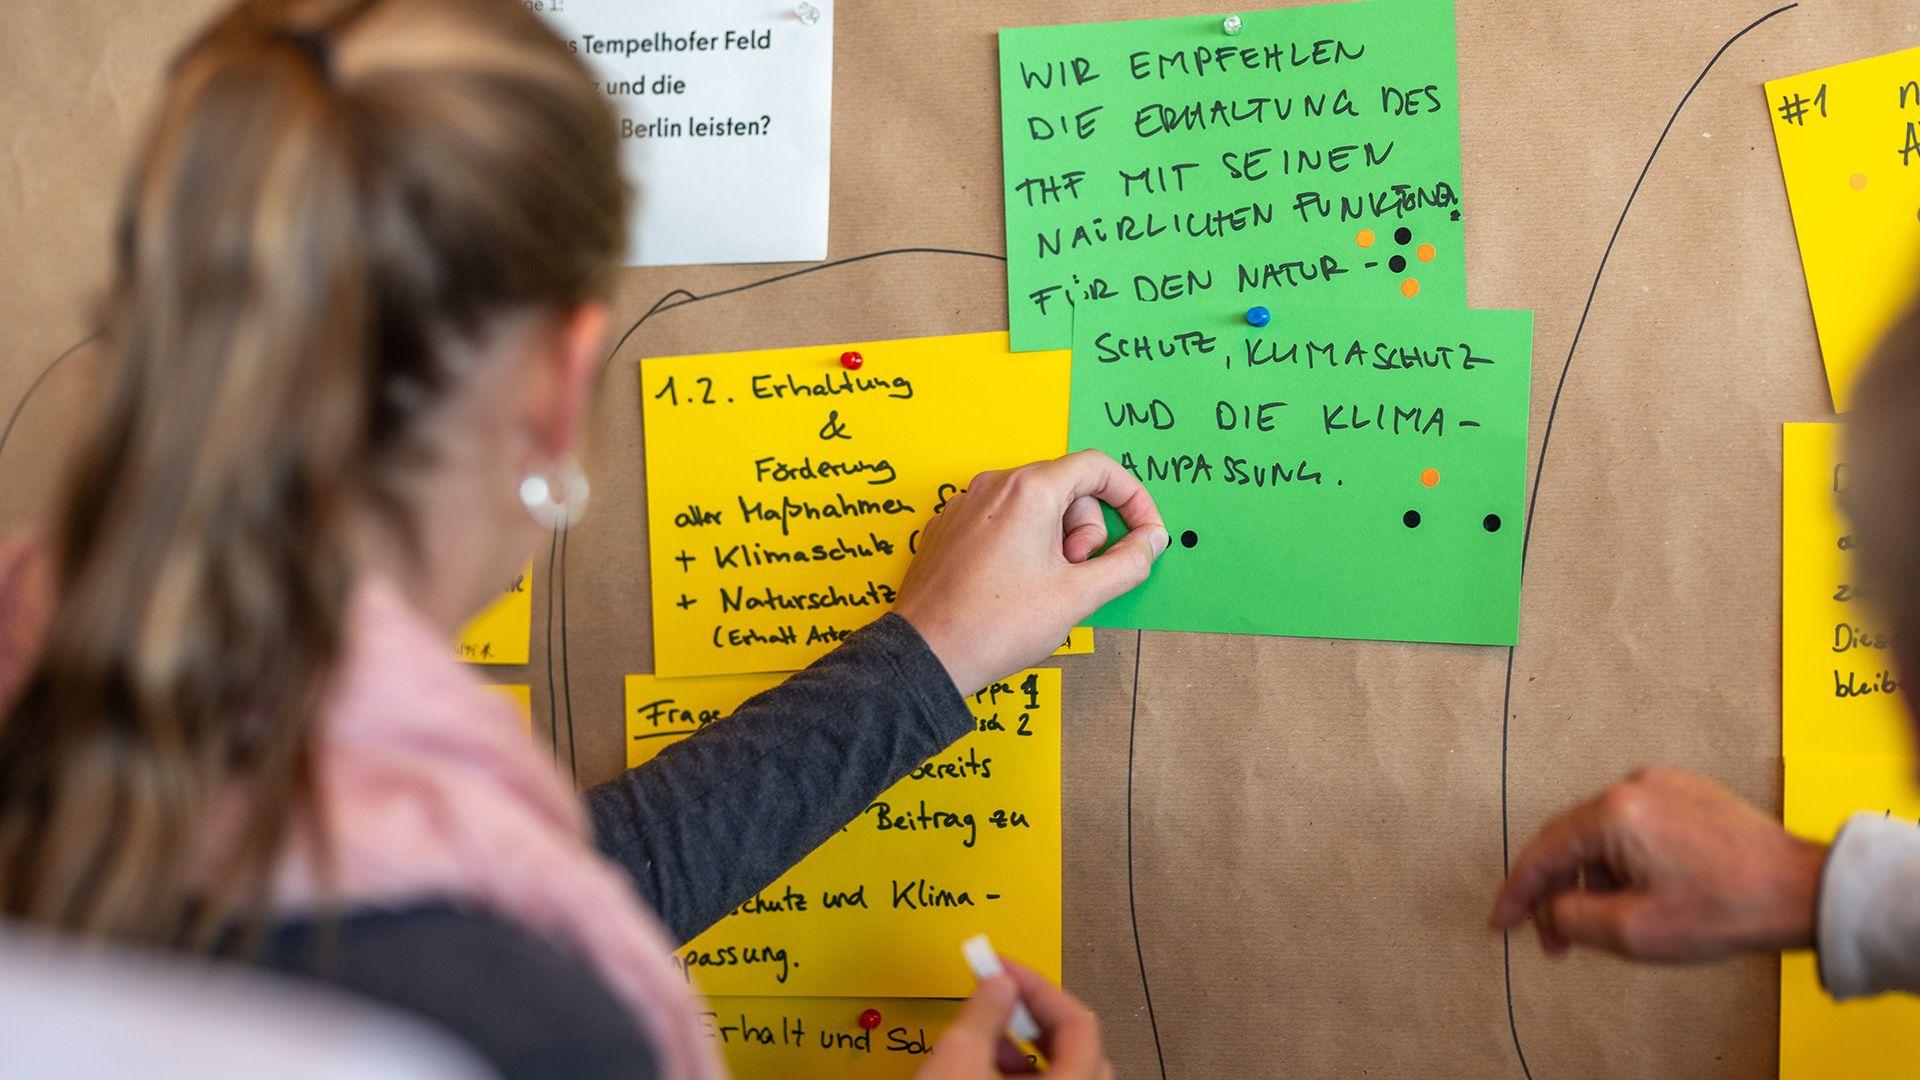 Tempelhofer Feld
und die
Berlin leisten?
WIR EMPFEHLEN
DIE ERHALTUNG DES
THF MIT SEINEN
NATÜRLICHEN FUNKTIONEN
FÜR DEN NATUR-
SCHUTZ, KLIMASCHUTZ
UND DIE KLIMA-
ANPASSUNG.
1.2. Erhaltung
&
Förderung
aller Maßnahmen
+ Klimaschutz (
+ Naturschutz
(Erhalt Arte
Frage
2
bereits
Beitrag zu
chutz und Klima-
passung.
Erhalt und Sch
#1
Dies
bleib